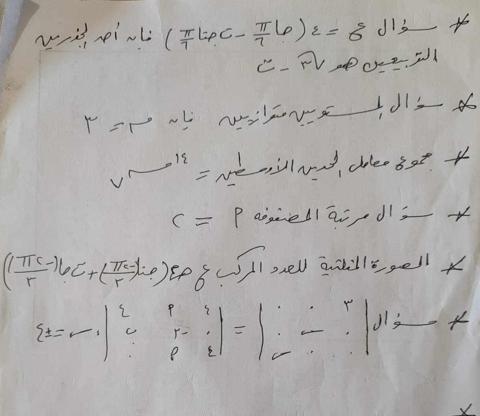 * سؤال ع = ٤ (جا π/٦ - ت جتا π/٦) فإن أحد الجذرين
التربيعيين هو √٣ - ت
* سؤال المستويين متوازيين فإن م = ٣
* مجموع معامل الحدين الأوسطين = ١٤ س٧
* سؤال مرتبة المصفوفة P = ٢
* الصورة المثلثية للعدد المركب ع = (جتا(-٢π/٣) + ت جا(-٢π/٣))
* سؤال |٣ ٠ ٠ ٠ س ٠ ٠ ٠ س| = |٤ P ٤ ٠ -٢ ب ٤ P ٠| ، س = ±٤
*